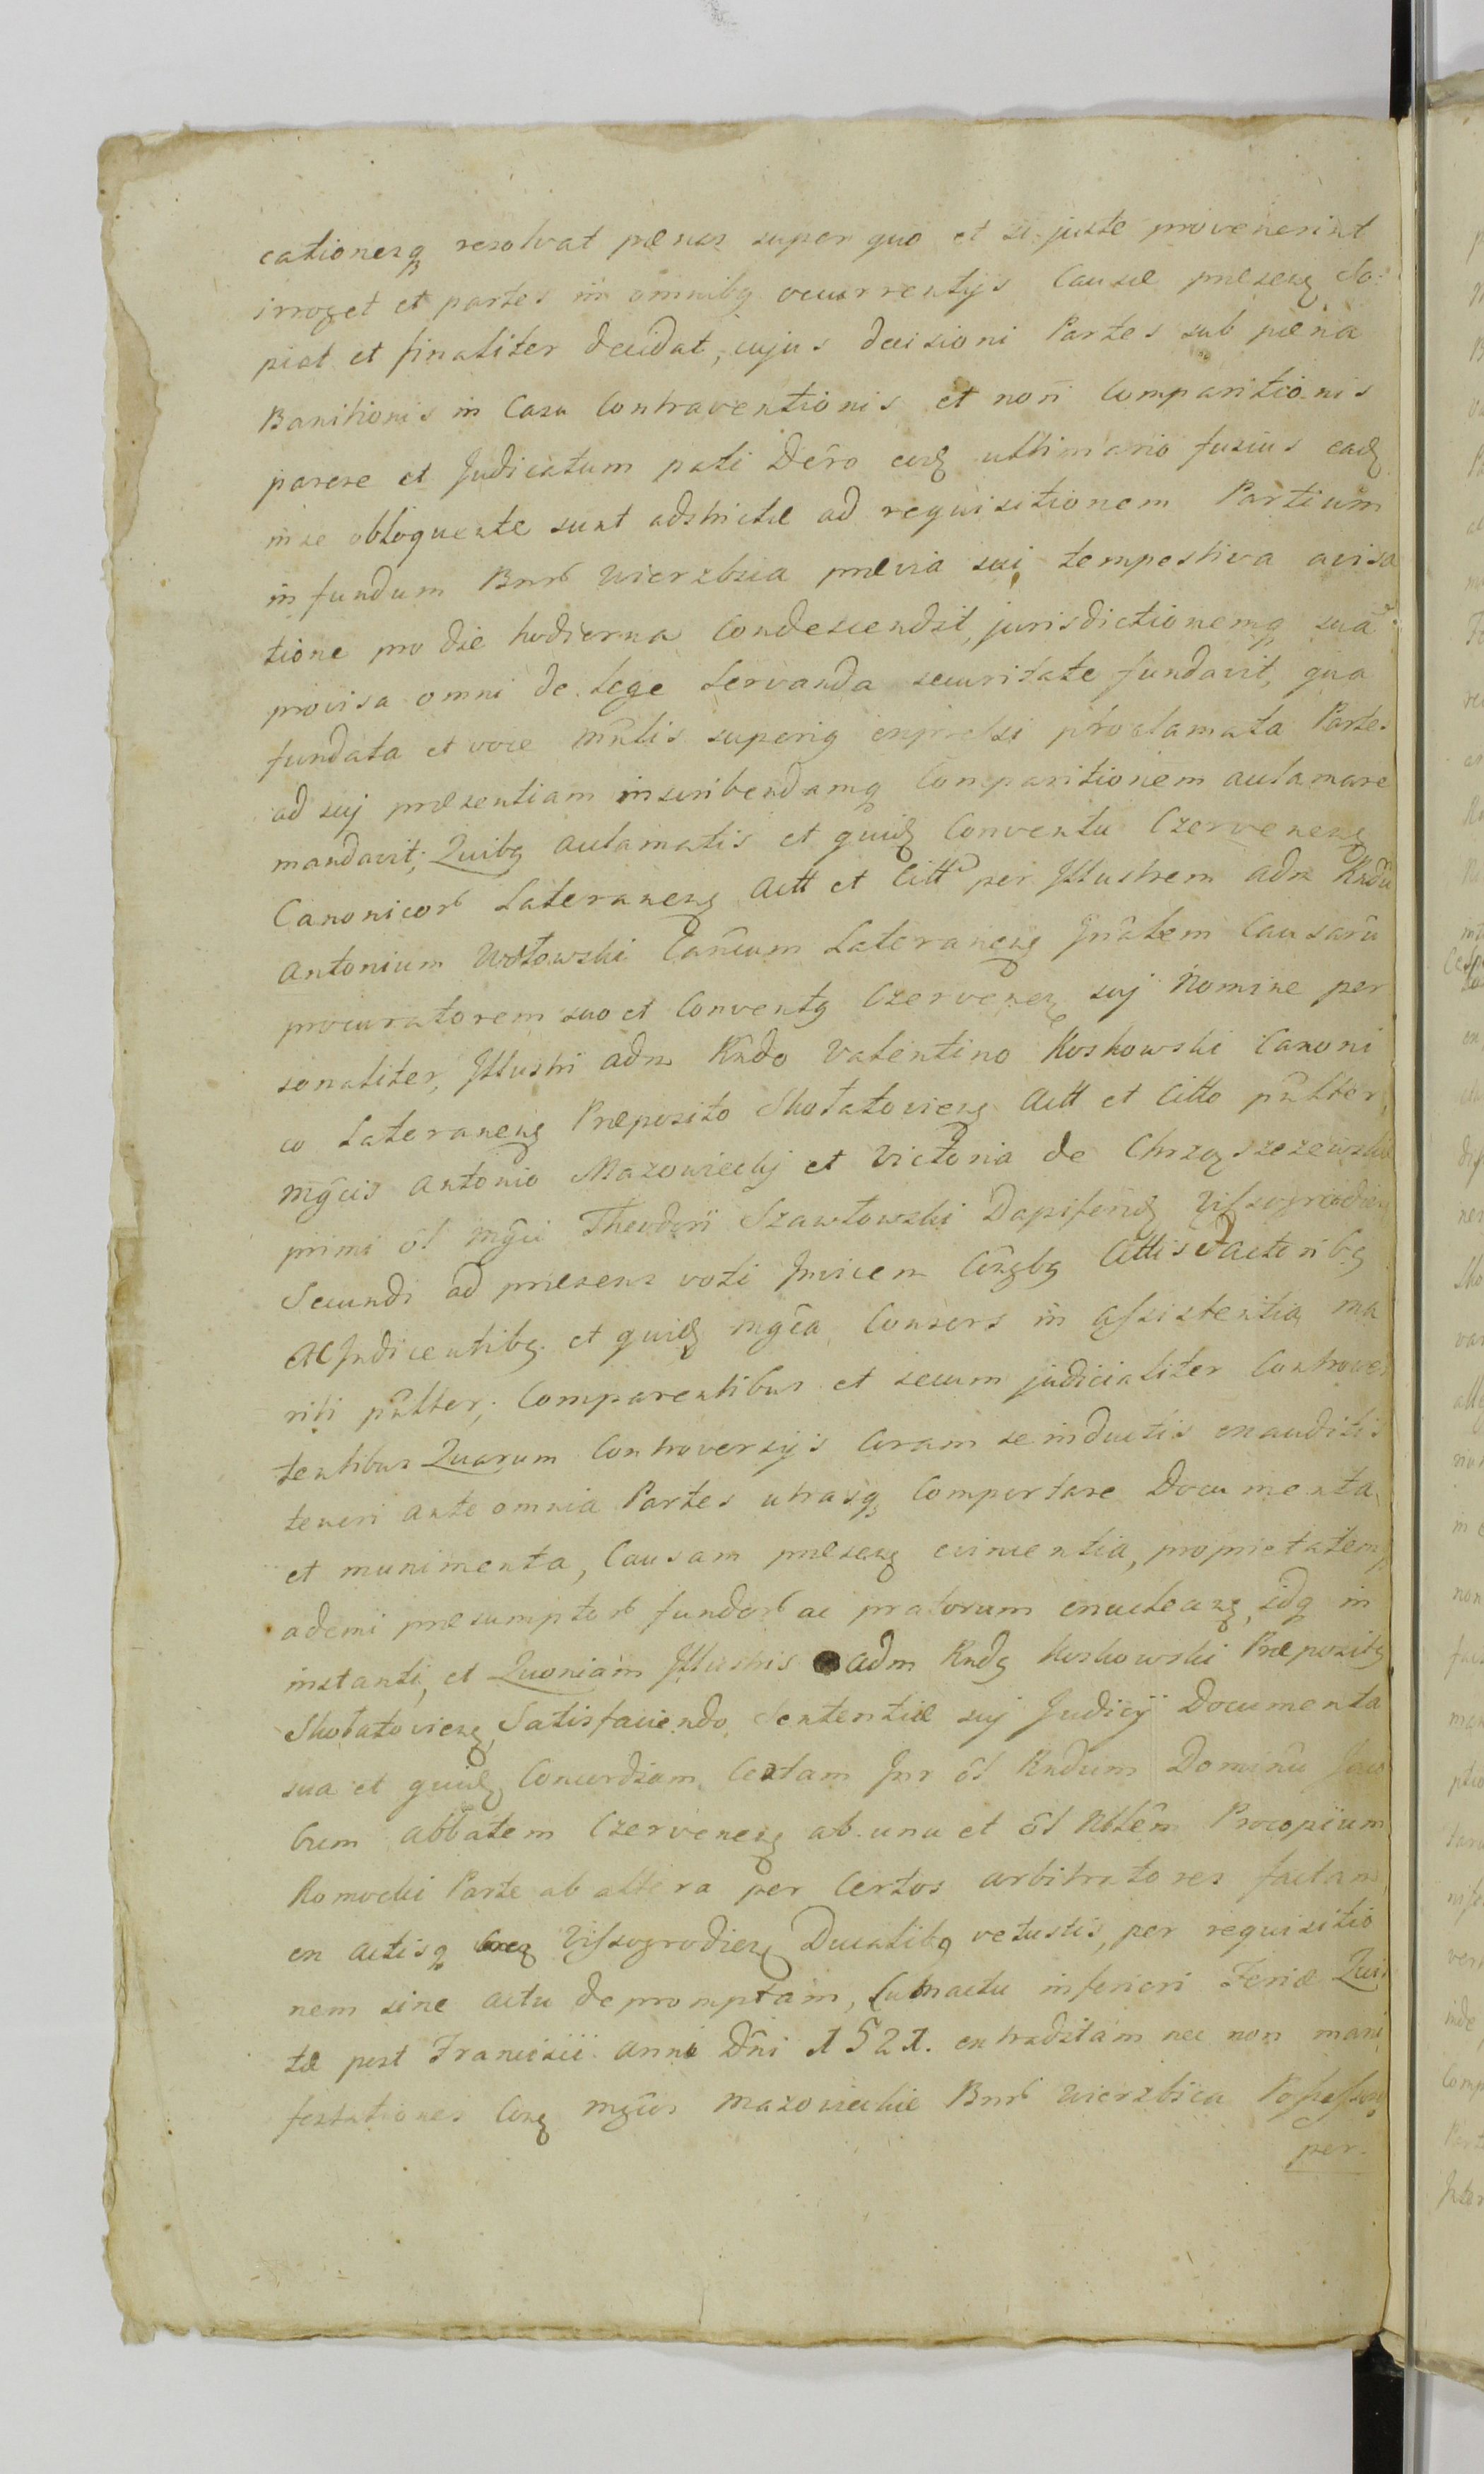 cationesq resolvat pænas super quo et si juste provenerint
irroget et partes in omnibq occurrentijs Causæ præsenq So:
piat et finaliter decidat, cujus decisioni Partes sub pæna
Banitionis in Casu Contraventionis et non Comparitionis
parere et Judicatum pati Dcro eodq ultimario fusius eadq
in se obloquente sunt adstrictæ ad requisitionem Partium
in fundum Bnrb Wierzbica prævia sui tempestiva avisa
tione pro die hodierna Condescendit, jurisdictionemq suã
provisa omni de Lege Servanda securitate fundavit, qua
fundata et voce Mnlis superiq expressi proclamata Partes
ad suj præsentiam inscribendamq Comparitionem acclamare
mandavit; Quibq acclamatis et quidq Conventu Czervenenq
Canonicorb Lateranenq Actt et Citt per Jllustrem adm Rndũ
Antonium Wotowski Cañcum Lateranenq Jnr̃alem Causarũ
procuratorem suo et Conventq Czervenenq suj Nomine per
sonaliter, Jllustri adm Rndo Valentino Koskowski Canoni
co Lateranenq Præposito Skotatovienq Actt et Citto pñlter,
Mg̃cis Antonio Mazowieckj et Victoria de Chrzqszczewskie
primi ol Mg̃ci Theodori Szawłowski Dapiferidq Vissogrodienq
Secundi ad præsens voti Jnvicem Cõngbq Cittis Actoribq
ac Judicentibq et quidq Mg̃ca Consors in assistentia ma
riti pñlter, Comparentibus et secum judicialiter Controver
tentibus Quarum Controversijs Coram se inductis exauditis
teneri ante omnia Partes utrasq Comportare Documenta
et munimenta, Causam præsenq evincentia, proprietatemq
ademi præsumptorb fundorb ac pratorum enucleanq idq in
instanti, et Quoniam Jllustris adm Rndq Koskowski Præpositq
Skotatovienq, Satisfaciendo Sententiæ suj Judicij Documenta
sua et quidq Concordiam Certam Jnr ol Rndum Dominũ Jaco
bum Abbatem Czervenenq ab una et ol Nblem Procopium
Romocki Parte ab altera per Certos arbitratores factam
ex Actisq Vissogrodienq Ducalibq vetustis, per requisitio
nem sine actu depromptam, Sub actu inferiori Feriæ Quin
tæ post Francisii Anni Dñi 1521. extraditam nec non mani
festationes Mg̃cos Mazowieckie Bnrb Wierzbica Possessorq
per.